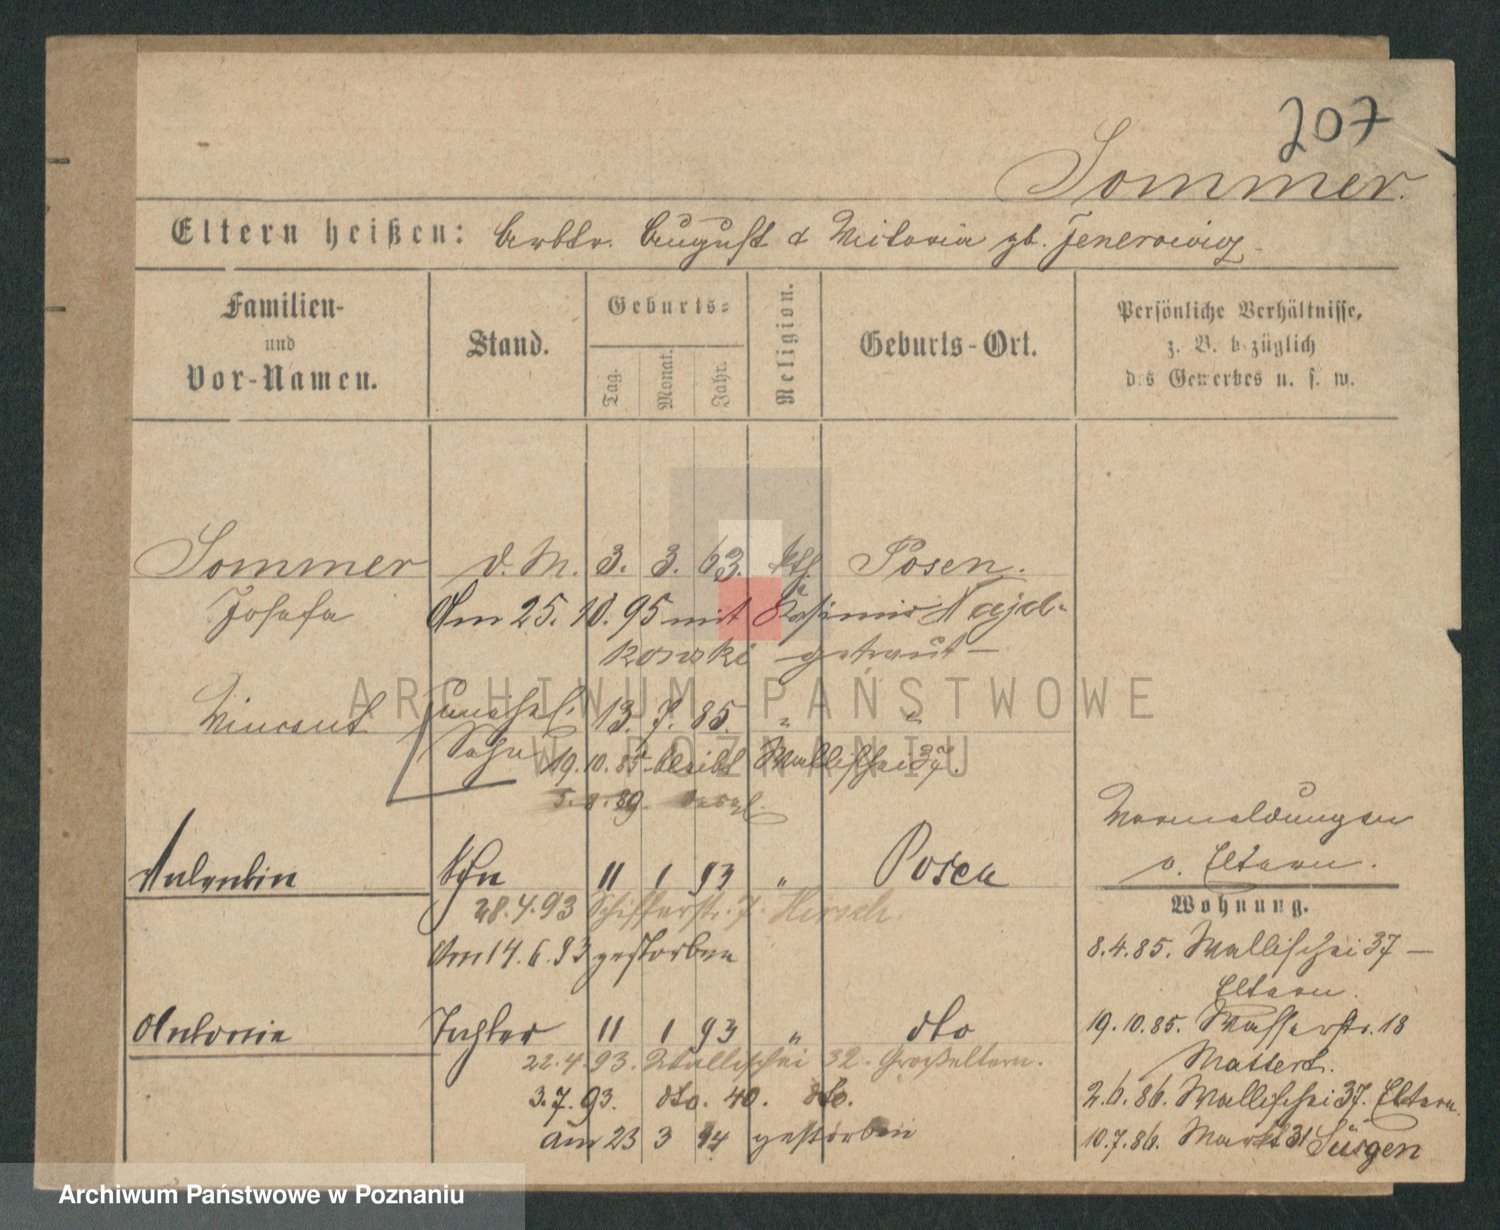 207
Sommer.
Eltern heißen: Arbtr. August & Victoria gb. Jenerowicz
Familien- und Vor-Namen.
Stand.
Geburts-
Tag.
Monat.
Jahr.
Religion.
Geburts-Ort.
Persönliche Verhältnisse, z. B. bezüglich des Gewerbes u. s. w.
Sommer d. M. 3. 3. 63. kth. Posen.
Josefa Am 25. 10. 95 mit Kasimir Najd-
kowski getraut —
Vincent unehel. 13. 7. 85. " "
Sohn 19. 10. 85. bleibt Wallischei 37.
5. 8. 89.
Valentin Sohn 11 1 93 " Posen
28. 4. 93 Schifferstr. 7. Hirsch.
Am 14. 6. 93 gestorben
Antonie Tochter 11 1 93 " dto
22. 4. 93. Wallischei 32. Großeltern.
3. 7. 93. dto. 40. dto.
am 23 3 94 gestorben
Vermeldungen
v. Eltern.
Wohnung.
8. 4. 85. Wallischei 37 —
Eltern.
19. 10. 85. Wasserstr. 18
Mattert.
2. 6. 86. Wallischei 37. Eltern.
10. 7. 86. Markt 31 Süsgen
ARCHIWUM PAŃSTWOWE
W POZNANIU
Archiwum Państwowe w Poznaniu